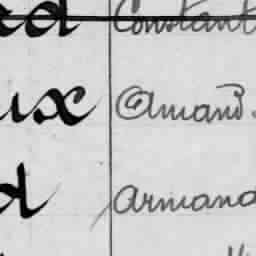 rd Constant
ux Amand.
d Armand